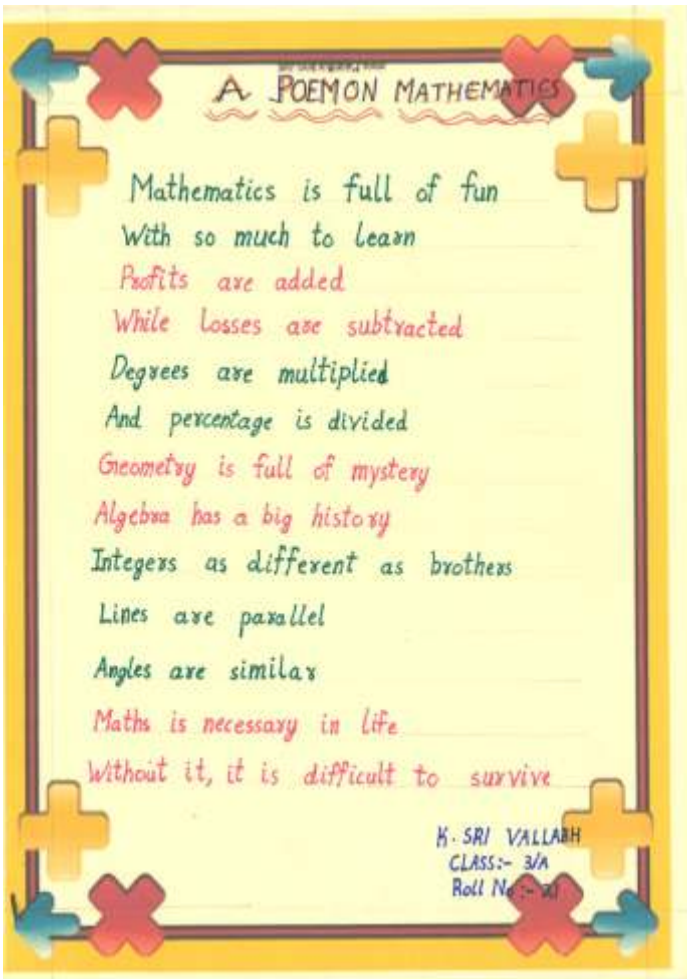 A POEM ON MATHEMATICS
Mathematics is full of fun
With so much to learn
Profits are added
While losses are subtracted
Degrees are multiplied
And percentage is divided
Geometry is full of mystery
Algebra has a big history
Integers as different as brothers
Lines are parallel
Angles are similar
Maths is necessary in life
Without it, it is difficult to survive
K. SRI VALLABH
CLASS:- 3/A
Roll No :-